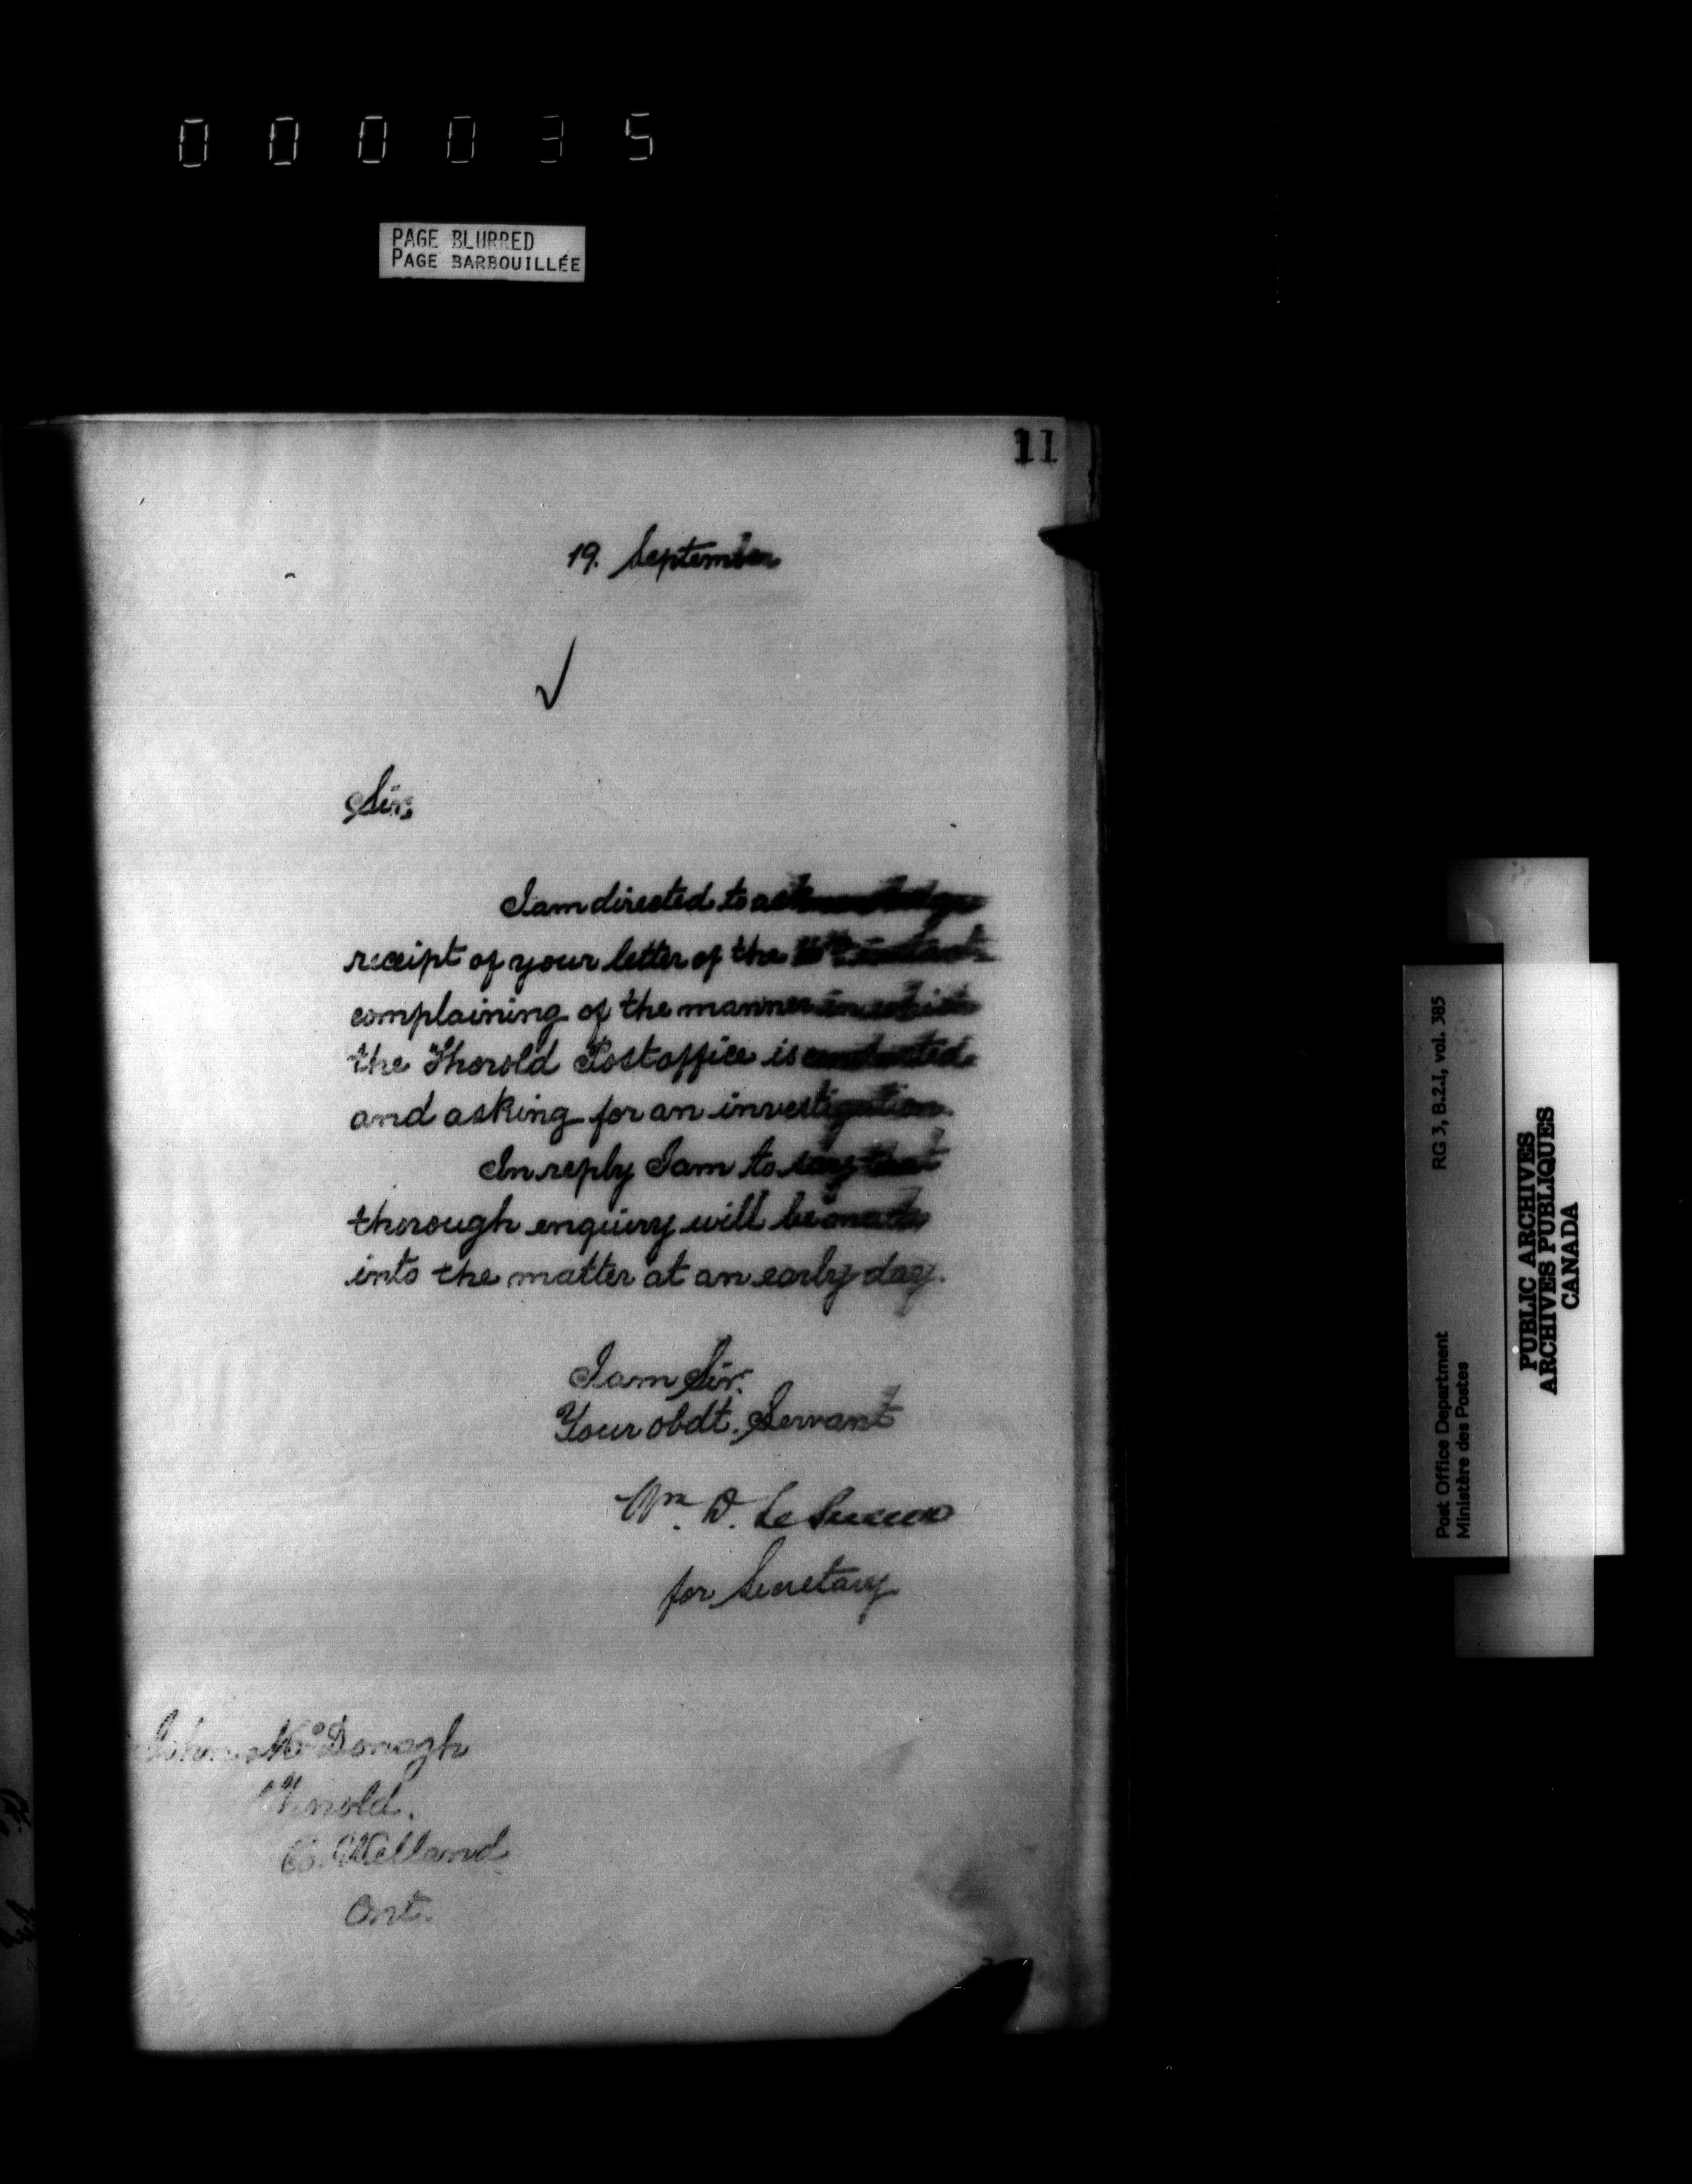 000035
PAGE BLURRED
PAGE BARBOUILLÉE
11
19. September
Sir,
I am directed to acknowledge
receipt of your letter of the instant
complaining of the manner in which
the Thorold Post office is conducted
and asking for an investigation.
In reply I am to say that
thorough enquiry will be made
into the matter at an early day.
I am Sir,
Your obdt. Servant
Wm. D. LeSueur
for Secretary
John McDonagh
Thorold.
Co. Welland
Ont.
Post Office Department RG 3, B.2.1, vol. 385
Ministère des Postes
PUBLIC ARCHIVES
ARCHIVES PUBLIQUES
CANADA